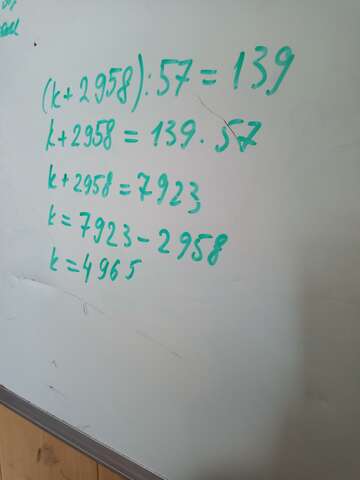 (k + 2958) : 57 = 139
k + 2958 = 139 · 57
k + 2958 = 7923
k = 7923 - 2958
k = 4965